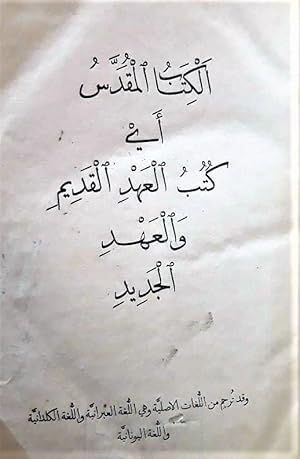 اَلْكِتَابُ الْمُقَدَّسُ
أَيْ
كُتُبُ الْعَهْدِ الْقَدِيمِ
وَالْعَهْدِ
الْجَدِيدِ
وقد تُرجم من اللُّغات الاصليَّة وهي اللُّغة العبرانيَّة واللُّغة الكلدانيَّة
واللُّغة اليونانيَّة